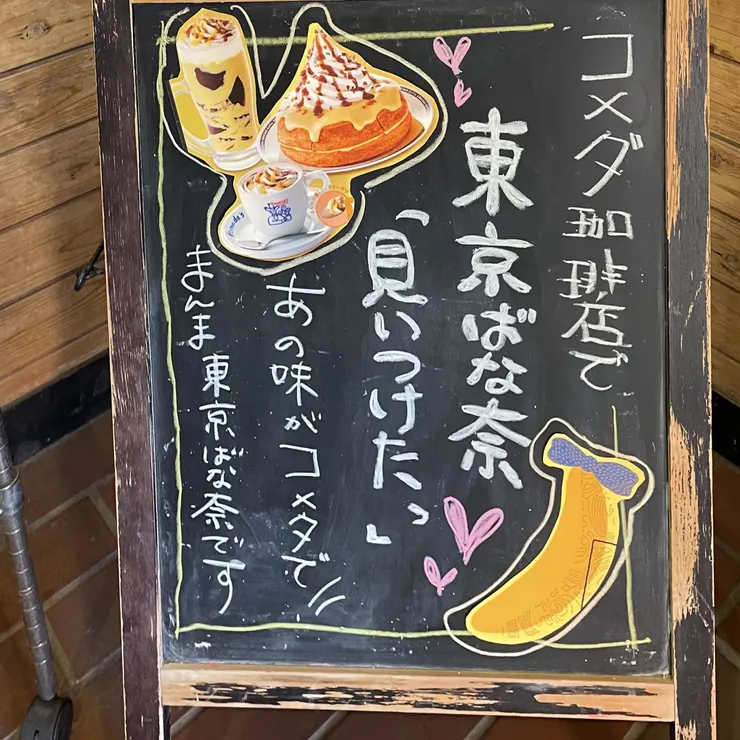 コメダ珈琲店で
東京ばな奈
「見いつけたっ」
あの味がコメダで//
まんま東京ばな奈です